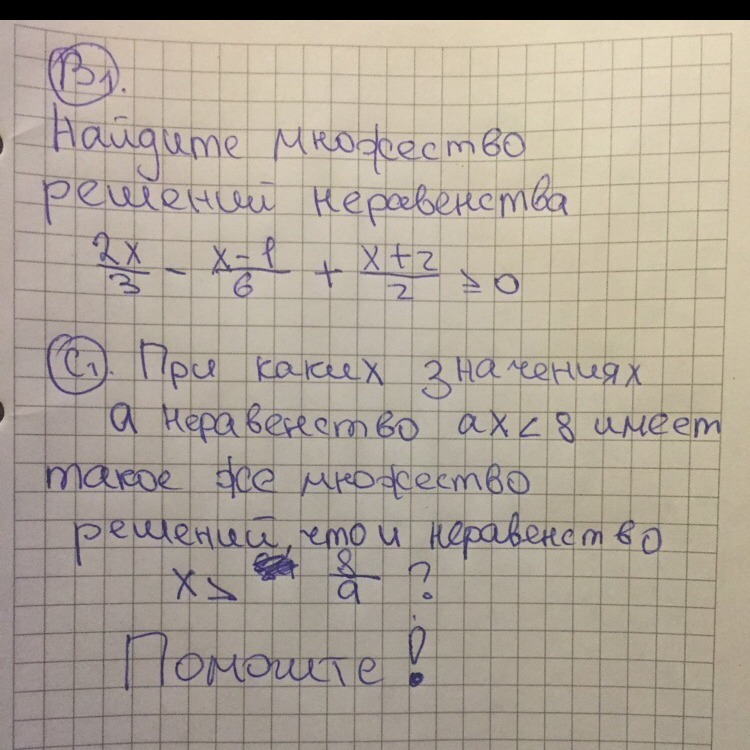 В1.
Найдите множество
решений неравенства
2x/3 - x-1/6 + x+2/2 ≥ 0
С1. При каких значениях
а неравенство ax < 8 имеет
такое же множество
решений, что и неравенство
x > 8/a ?
Помоште!